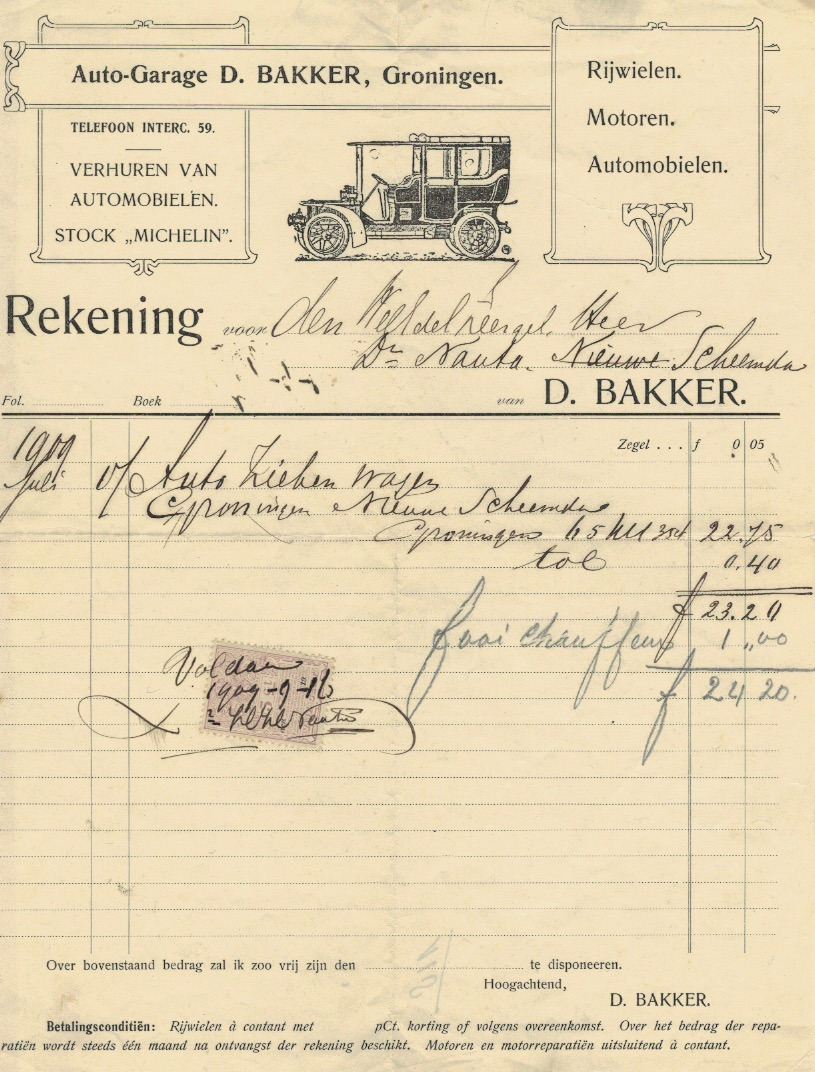 Auto-Garage D. BAKKER, Groningen.
TELEFOON INTERC. 59.
VERHUREN VAN
AUTOMOBIELEN.
STOCK „MICHELIN".
Rijwielen.
Motoren.
Automobielen.
Rekening voor den Heer
Dr Nauta. Nieuwe Scheemda
Fol. Boek van D. BAKKER.
Zegel . . . f 0 05
1909
Juli Auto Zieken wagen
Groningen Nieuwe Scheemda
Groningen 65 KM 22.75
tol 0.40
f 23.20
fooi chauffeur 1,,00
f 24 20.
Voldaan
1909-9-16
Nauta
Over bovenstaand bedrag zal ik zoo vrij zijn den te disponeeren.
Hoogachtend,
D. BAKKER.
Betalingsconditiën: Rijwielen à contant met pCt. korting of volgens overeenkomst. Over het bedrag der repa-
ratiën wordt steeds één maand na ontvangst der rekening beschikt. Motoren en motorreparatiën uitsluitend à contant.